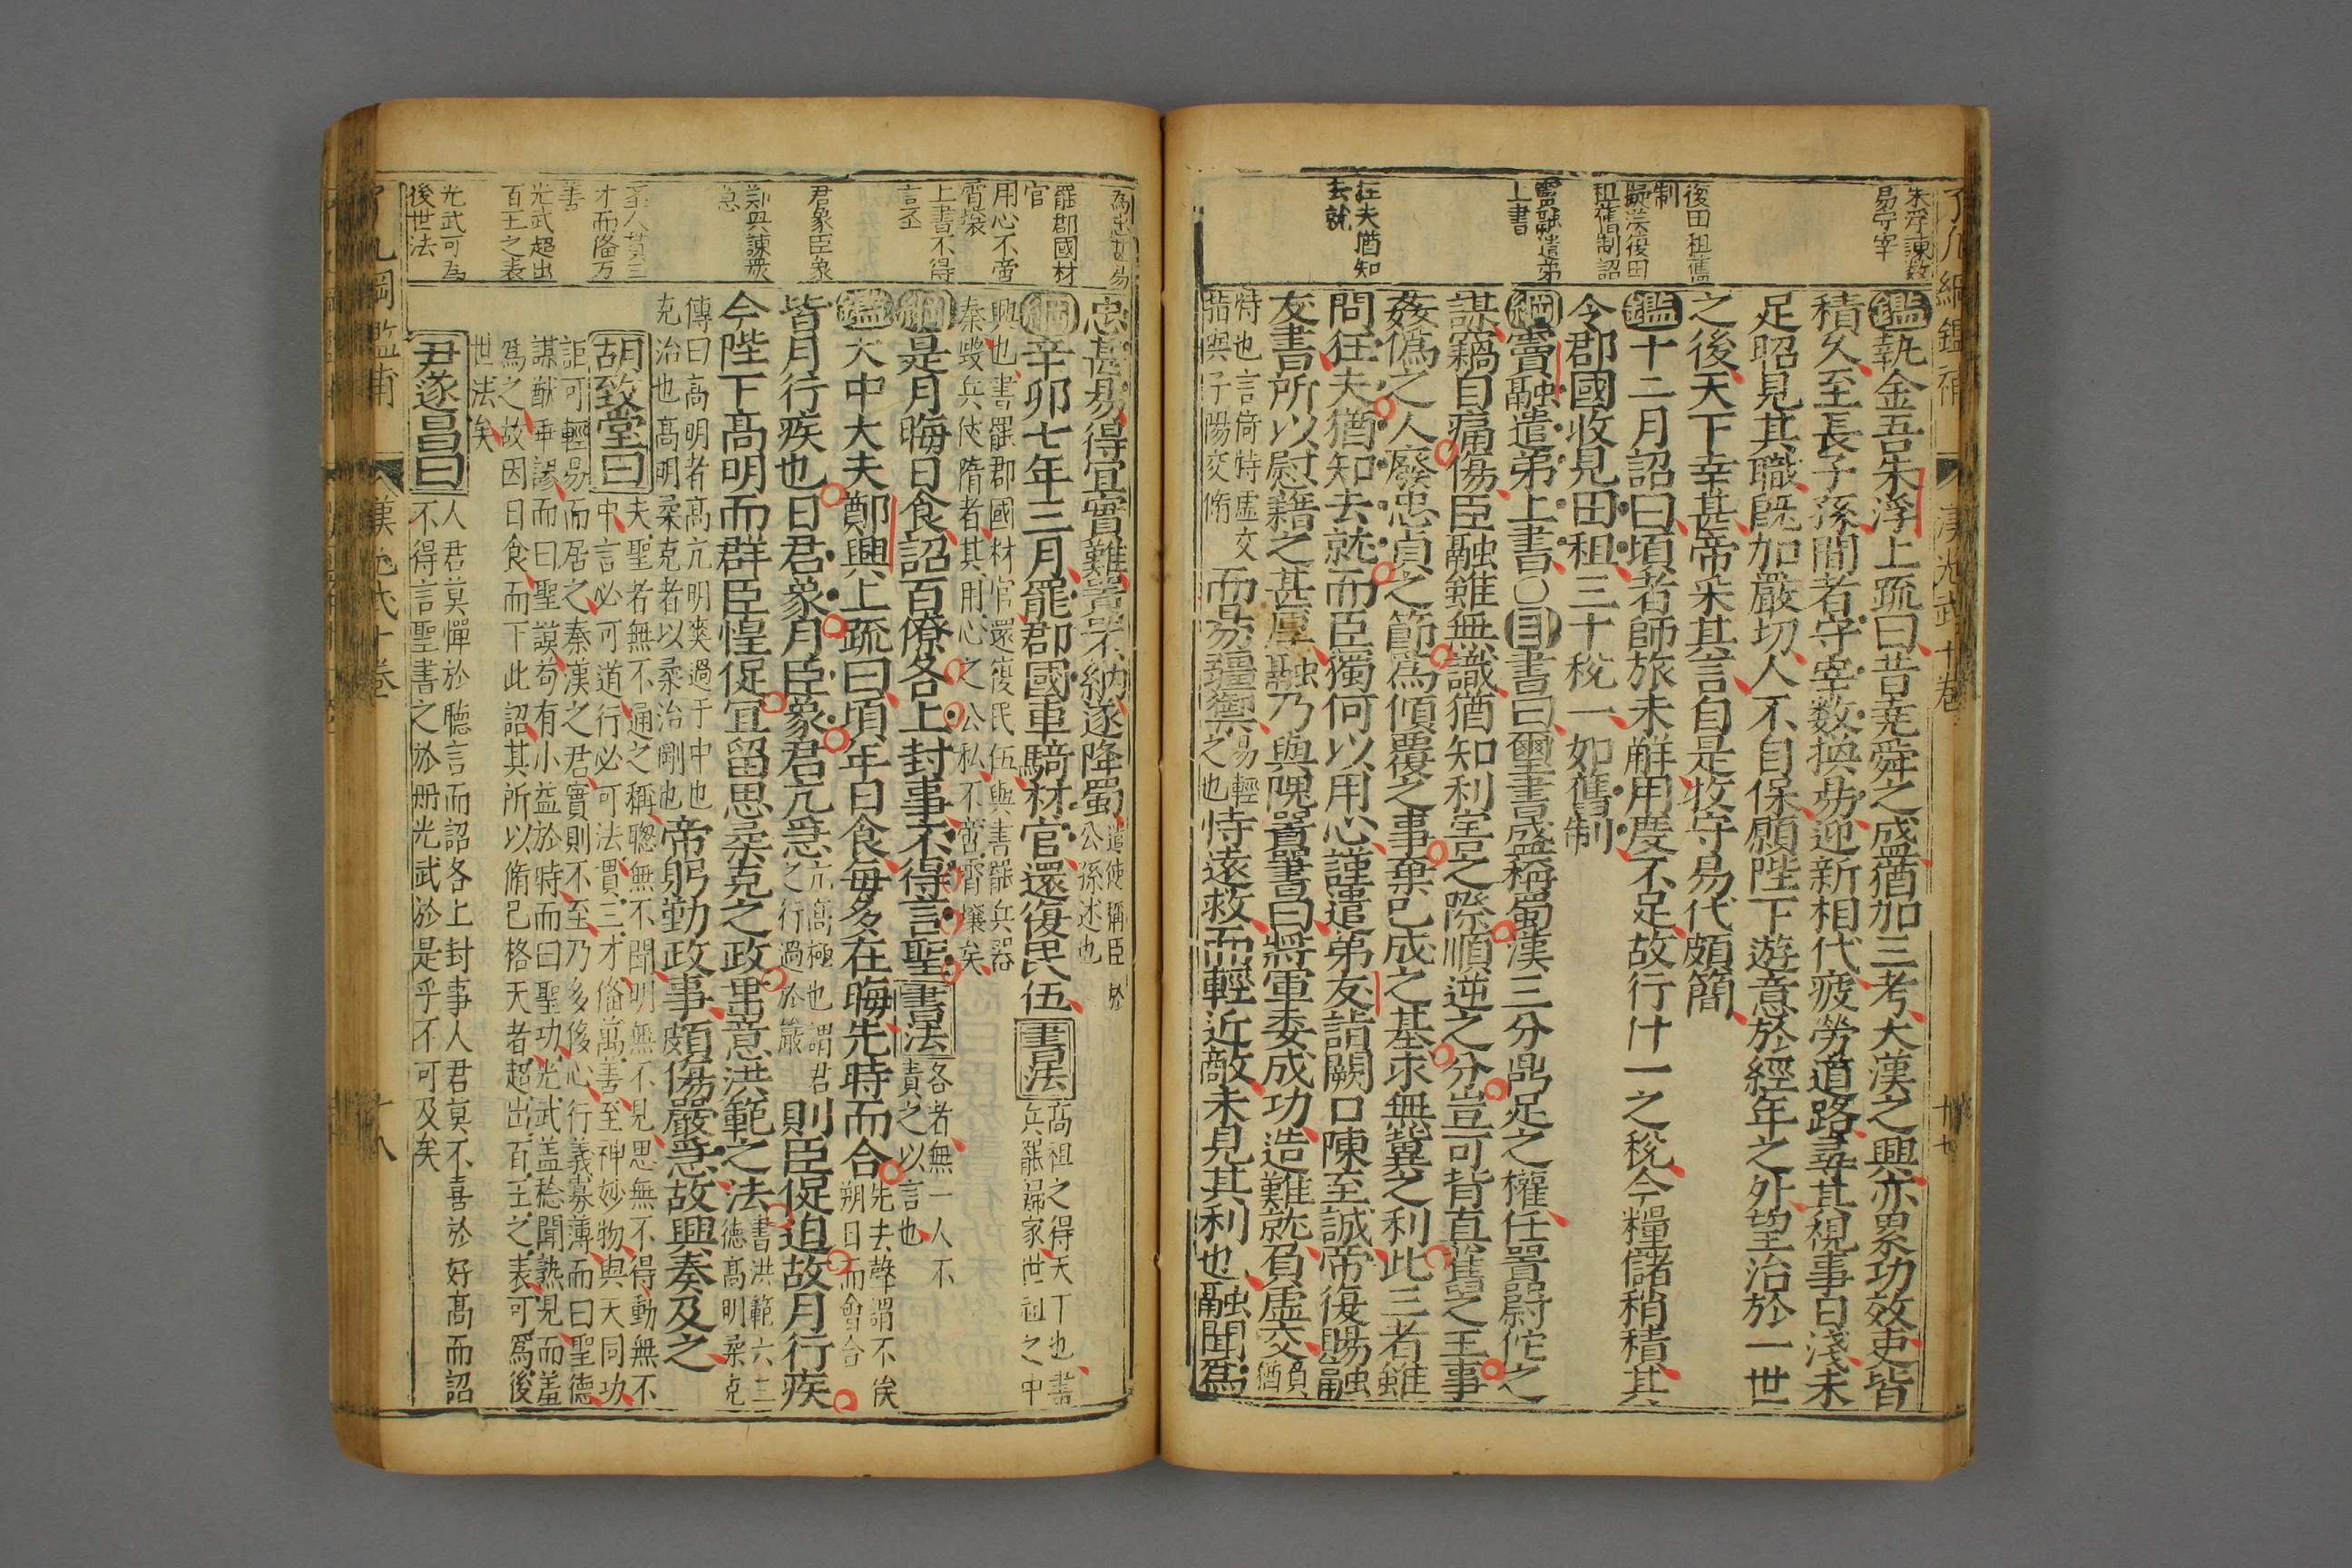 朱浮諫數
易守宰
後田租舊
制
擬漢復田
租舊制詔
竇融遣弟
上書
狂夫猶知
去就
鑑執金吾朱浮上疏曰昔堯舜之盛猶加三考大漢之興亦累功效吏皆
積久至長子孫間者守宰數換易迎新相代疲勞道路尋其視事日淺未
足昭見其職既加嚴切人不自保願陛下遊意於經年之外望治於一世
之後天下幸甚帝采其言自是牧守易代頗簡
鑑十二月詔曰頃者師旅未解用度不足故行什一之稅今糧儲稍積其
令郡國收見田租三十稅一如舊制
綱竇融遣弟上書○目書曰璽書盛稱蜀漢三分鼎足之權任囂尉佗之
謀竊自痛傷臣融雖無識猶知利害之際順逆之分豈可背真舊之主事
姦僞之人廢忠貞之節爲傾覆之事棄已成之基求無冀之利此三者雖
問狂夫猶知去就而臣獨何以用心謹遣弟友詣闕口陳至誠帝復賜融
友書所以慰藉之甚厚融乃與隗囂書曰將軍委成功造難就負虛交負猶
特也言倚恃虛交
指與子陽交脩
而易彊禦易輕
之也
恃遠救而輕近敵未見其利也融聞爲
忠甚易得宜實難囂不納遂降蜀遣使稱臣於
公孫述也
綱辛卯七年三月罷郡國車騎材官還復民伍書法高祖之得天下也書
兵罷歸家世祖之中
興也書罷郡國材官還復民伍與書罷兵器
秦毀兵俠隋者其用心之公私不啻霄壤矣
綱是月晦日食詔百僚各上封事不得言聖書法各者無一人不
責之以言也
鑑大中大夫鄭興上疏曰頃年日食每多在晦先時而合先去聲謂不俟
朔日而會合
皆月行疾也日君象月臣象君亢急亢高極也謂君
之行過於嚴
則臣促迫故月行疾
今陛下高明而群臣惶促宜留思柔克之政垂意洪範之法書洪範六三
德高明柔克
傳曰高明者高亢明爽過于中也
克治也高明柔克者以柔治剛也
帝躬勤政事頗傷嚴急故興奏及之
胡致堂曰夫聖者無不通之稱聰無不聞明無不見思無不得動無不
中言必可道行必可法貫三才備萬善至神妙物與天同功
詎可輕易而居之秦漢之君實則不至乃多侈心行義寡薄而曰聖德
謀猷乖謬而曰聖謨苟有小益於時而曰聖功光武盖稔聞熟見而羞
爲之故因日食而下此詔其所以脩已格天者超出百王之表可爲後
世法矣
尹遂昌曰人君莫憚於聽言而詔各上封事人君莫不喜於好高而詔
不得言聖書之於册光武於是乎不可及矣
罷郡國材
官
用心不啻
霄壤
上書不得
言聖
君象臣象
鄭興諫嚴
急
聖人貫三
才而備万
善
光武超出
百王之表
光武可為
後世法